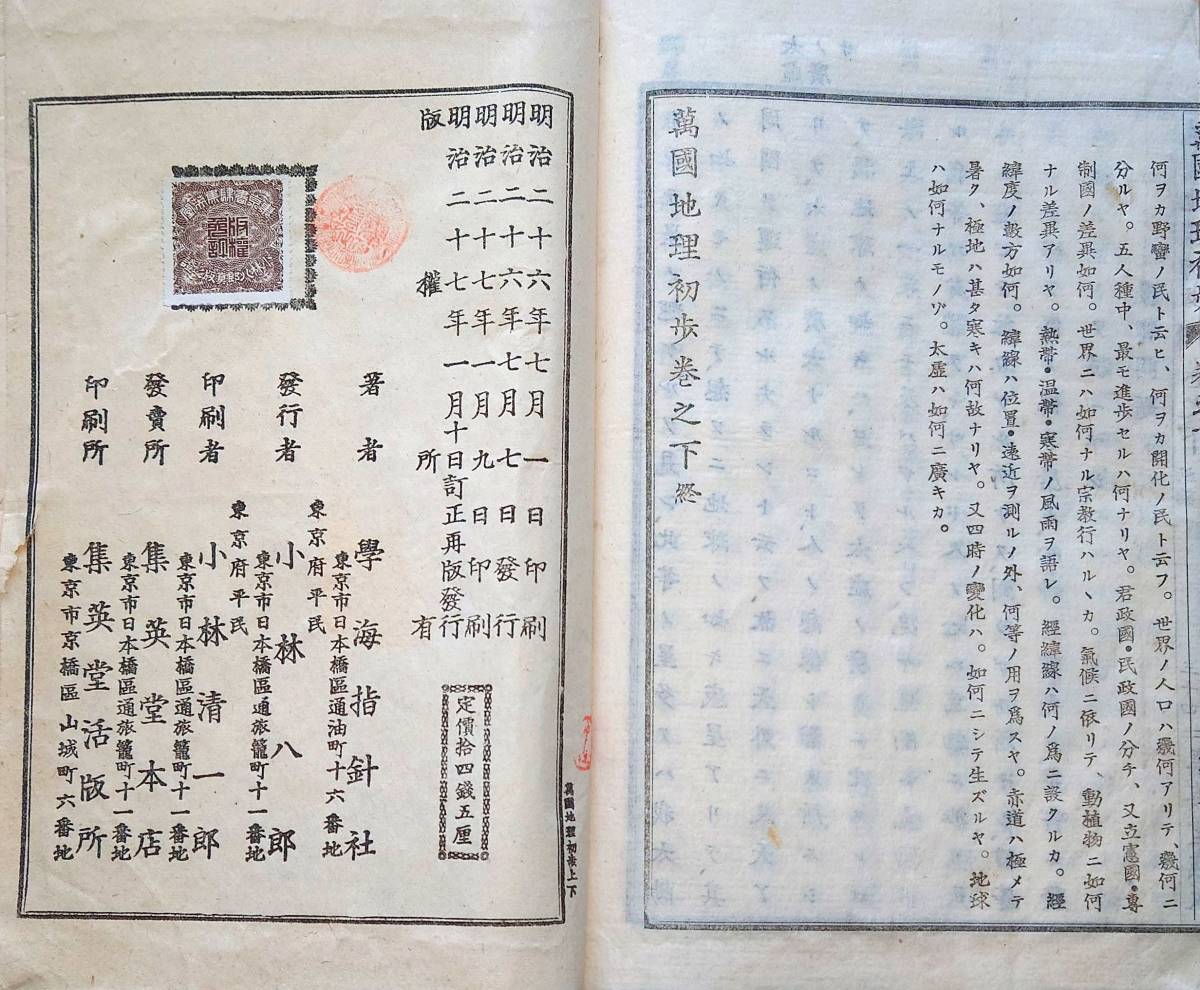 何ヲカ野蠻ノ民ト云ヒ、何ヲカ開化ノ民ト云フ。世界ノ人口ハ幾何アリテ、幾何ニ
分ルヤ。五人種中、最モ進歩セルハ何ナリヤ。君政國・民政國ノ分チ、又立憲國・專
制國ノ差異如何。世界ニハ如何ナル宗教行ハルヽカ。氣候ニ依リテ、動植物ニ如何
ナル差異アリヤ。熱帶・溫帶・寒帶ノ風雨ヲ語レ。經緯線ハ何ノ爲ニ設クルカ。經
緯度ノ數方如何。緯線ハ位置・遠近ヲ測ルノ外、何等ノ用ヲ爲スヤ。赤道ハ極メテ
暑ク、極地ハ甚タ寒キハ何故ナリヤ。又四時ノ變化ハ。如何ニシテ生ズルヤ。地球
ハ如何ナルモノゾ。太虛ハ如何ニ廣キカ。
萬國地理初歩卷之下終
明治二十六年七月一日印刷
明治二十六年七月七日發行
明治二十七年一月九日印刷
明治二十七年一月十日訂正再版發行
版權所有
定價拾四錢五厘
萬國地理初歩上下
著者
東京市日本橋區通油町十六番地
學海指針社
發行者
東京府平民
東京市日本橋區通旅籠町十一番地
小林八郎
印刷者
東京府平民
東京市日本橋區通旅籠町十一番地
小林清一郎
發賣所
東京市日本橋區通旅籠町十一番地
集英堂本店
印刷所
東京市京橋區山城町六番地
集英堂活版所